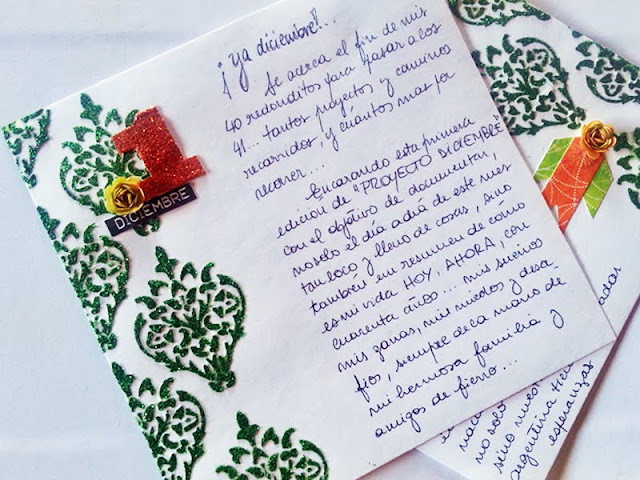 1
DICIEMBRE
¡Ya diciembre!...
Se acerca el fin de mis
40 redonditos para pasar a los
41... tantos proyectos y caminos
recorridos y cuántos mas por
recorrer...
Encarando esta primera
edicion de "PROYECTO DICIEMBRE"
con el objetivo de documentar,
no solo el día a día de este mes
tan loco y lleno de cosas, sino
tambien un resumen de cómo
es mi vida HOY, AHORA, con
cuarenta años... mis sueños
mis ganas, mis miedos y desa
fios, siempre de la mano de
mi hermosa familia y
amigos de fierro...
no solo
sino nuest
argentina tie
esperanzas